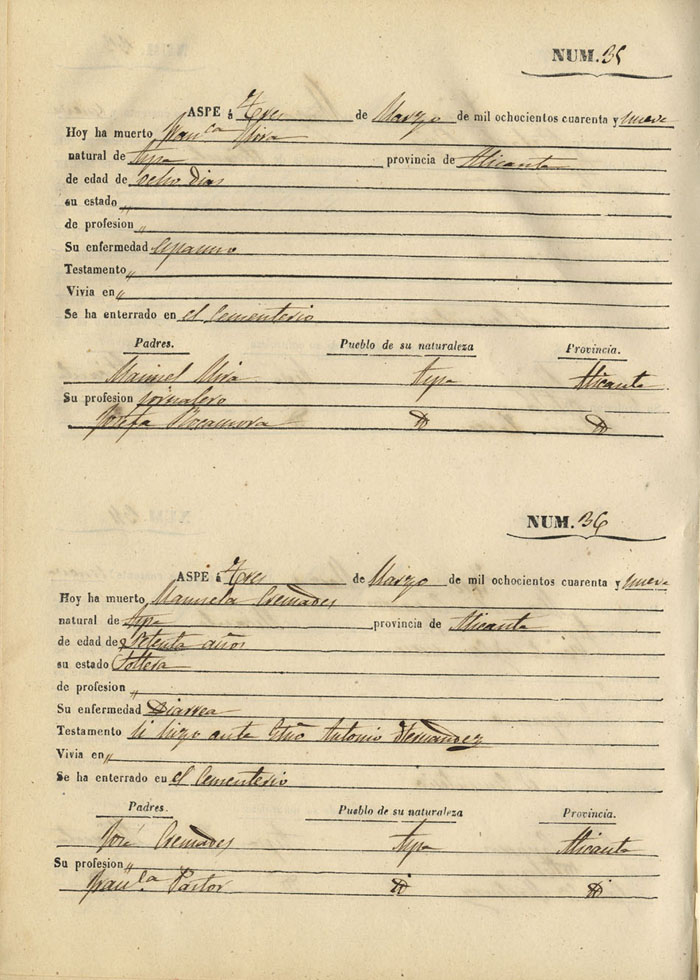 NUM. 35
ASPE á Tres de Marzo de mil ochocientos cuarenta y nueve
Hoy ha muerto Fran.ca Mira
natural de Aspe provincia de Alicante
de edad de ocho dias
su estado „
de profesion „
Su enfermedad
Testamento „
Vivia en „
Se ha enterrado en el Cementerio
Padres. Pueblo de su naturaleza Provincia.
Manuel Mira Aspe Alicante
Su profesion jornalero
Josefa Rocamora D D
NUM. 36
ASPE á Tres de Marzo de mil ochocientos cuarenta y nueve
Hoy ha muerto Manuela Cremades
natural de Aspe provincia de Alicante
de edad de Setenta años
su estado Soltera
de profesion „
Su enfermedad Diarrea
Testamento Si hizo ante Esno Antonio Hernandez
Vivia en „
Se ha enterrado en el Cementerio
Padres. Pueblo de su naturaleza Provincia.
José Cremades Aspe Alicante
Su profesion „
Fran.ca Pastor D D